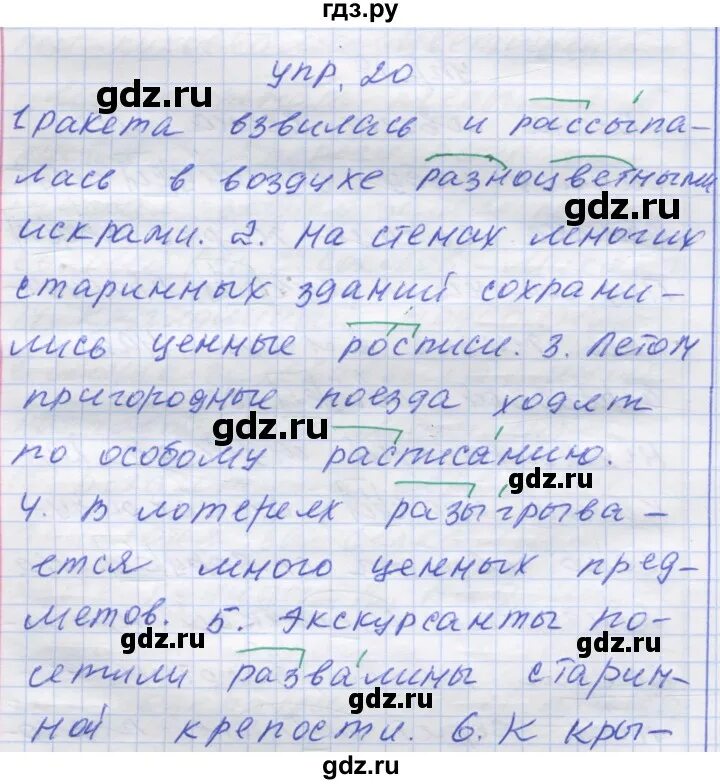 гдз.ру
упр. 20
gdz.ru gdz.ru
1 ракета взвилась и рассыпа-
лась в воздухе разноцветными
gdz.ru
искрами. 2. На стенах многих
старинных зданий сохрани-
лись ценные росписи. 3. Летом
пригородные поезда ходят
gdz.ru
по особому расписанию.
gdz.ru
4. В лотереях разыгрыва-
ется много ценных пред-
метов. 5. Экскурсанты по-
gdz.ru
сетили развалины старин-
gdz.ru
ной крепости. 6. К кры-
gdz.ru